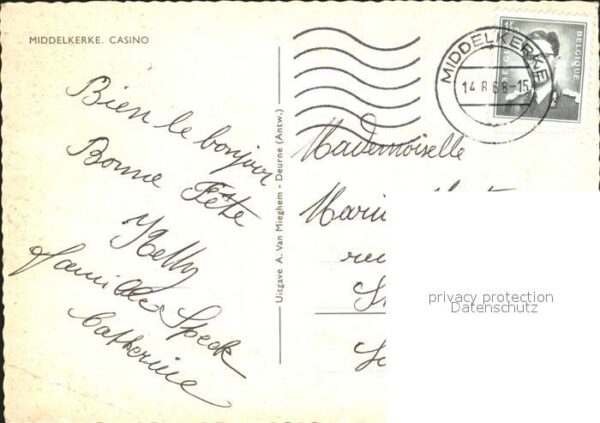 MIDDELKERKE. CASINO
Bien le bonjour
Bonne Fête
Famille Speck
Catherine
Uitgave A. Van Mieghem - Deurne (Antw.)
MIDDELKERKE
14 8 68-15
BELGIQUE
Mademoiselle
privacy protection
Datenschutz